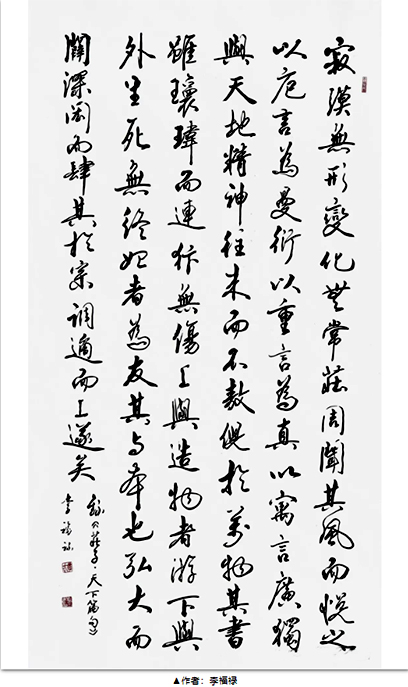 寂漠無形變化無常莊周聞其風而悅之
以卮言為曼衍以重言為真以寓言廣獨
與天地精神往來而不敖倪於萬物其書
雖瓌瑋而連犿無傷上與造物者游下與
外生死無終始者為友其与本也弘大而
闢深閎而肆其於宗調適而上遂矣
莊子·天下篇句
李福禄
▲作者：李福禄